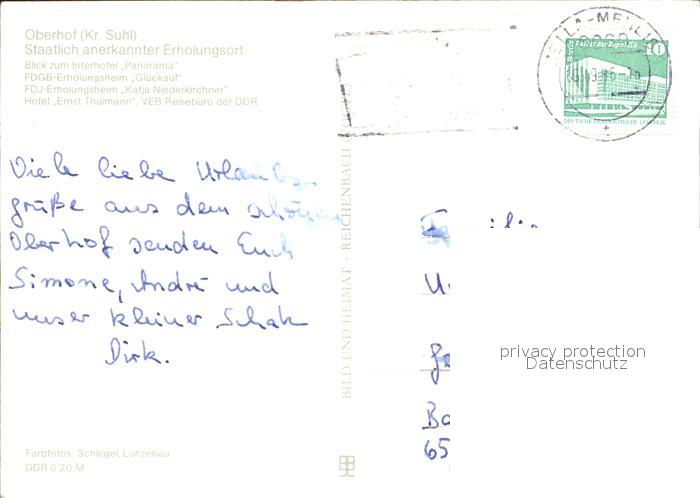 Oberhof (Kr. Suhl)
Staatlich anerkannter Erholungsort
Blick zum Interhotel „Panorama"
FDGB-Erholungsheim „Glückauf"
FDJ-Erholungsheim „Katja Niederkirchner"
Hotel „Ernst Thälmann", VEB Reisebüro der DDR
Viele liebe Urlaubs-
grüße aus dem schönen
Oberhof senden Euch
Simone, André und
unser kleiner Schatz
Dirk.
Farbfotos: Schlegel, Lunzenau
DDR 0,20 M
BILD UND HEIMAT · REICHENBACH
ELLA-MEHLIS
Berlin Palast der Republik
10
DEUTSCHE DEMOKRATISCHE REPUBLIK
Familie
65
privacy protection
Datenschutz